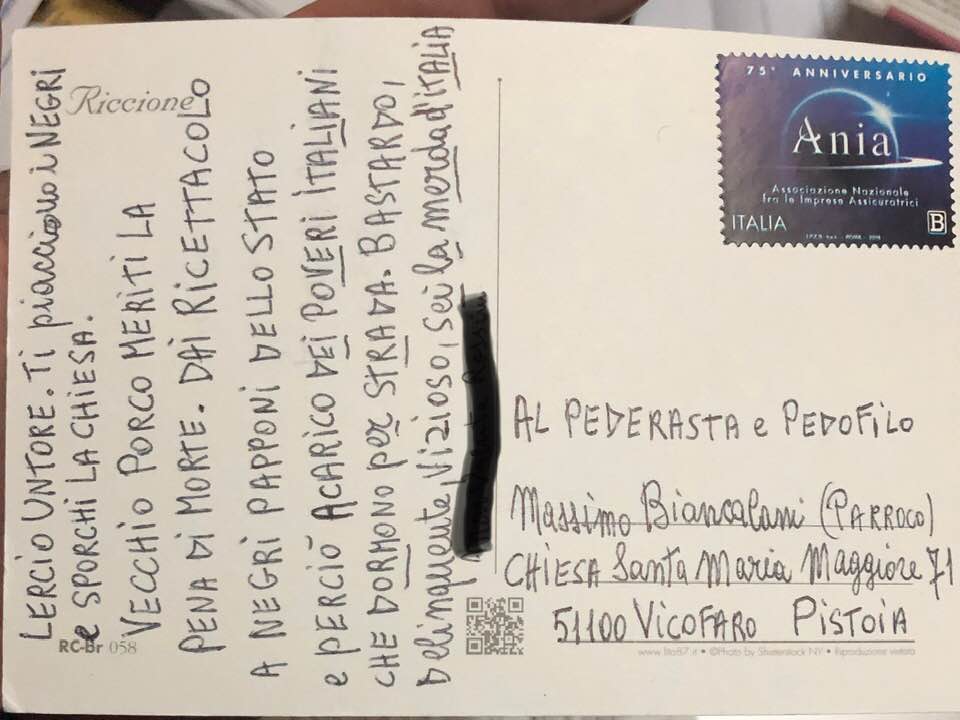 Riccione
LERCIO UNTORE. Ti piacciono i NEGRI
e SPORCHI LA CHIESA.
VECCHIO PORCO MERITI LA
PENA DI MORTE. DAI RICETTACOLO
A NEGRI PAPPONI DELLO STATO
e PERCIÒ ACARICO DEI POVERI ITALIANI
CHE DORMONO per STRADA. BASTARDO,
Delinquente, Vizioso, sei la merda d'ITALIA
RC-Br 058
75° ANNIVERSARIO
Ania
Associazione Nazionale
fra le Imprese Assicuratrici
ITALIA B
AL PEDERASTA e PEDOFILO
Massimo Biancalani (PARROCO)
CHIESA Santa Maria Maggiore 71
51100 VICOFARO PISTOIA
www.lito87.it • ©Photo by Shutterstock NY • Riproduzione vietata